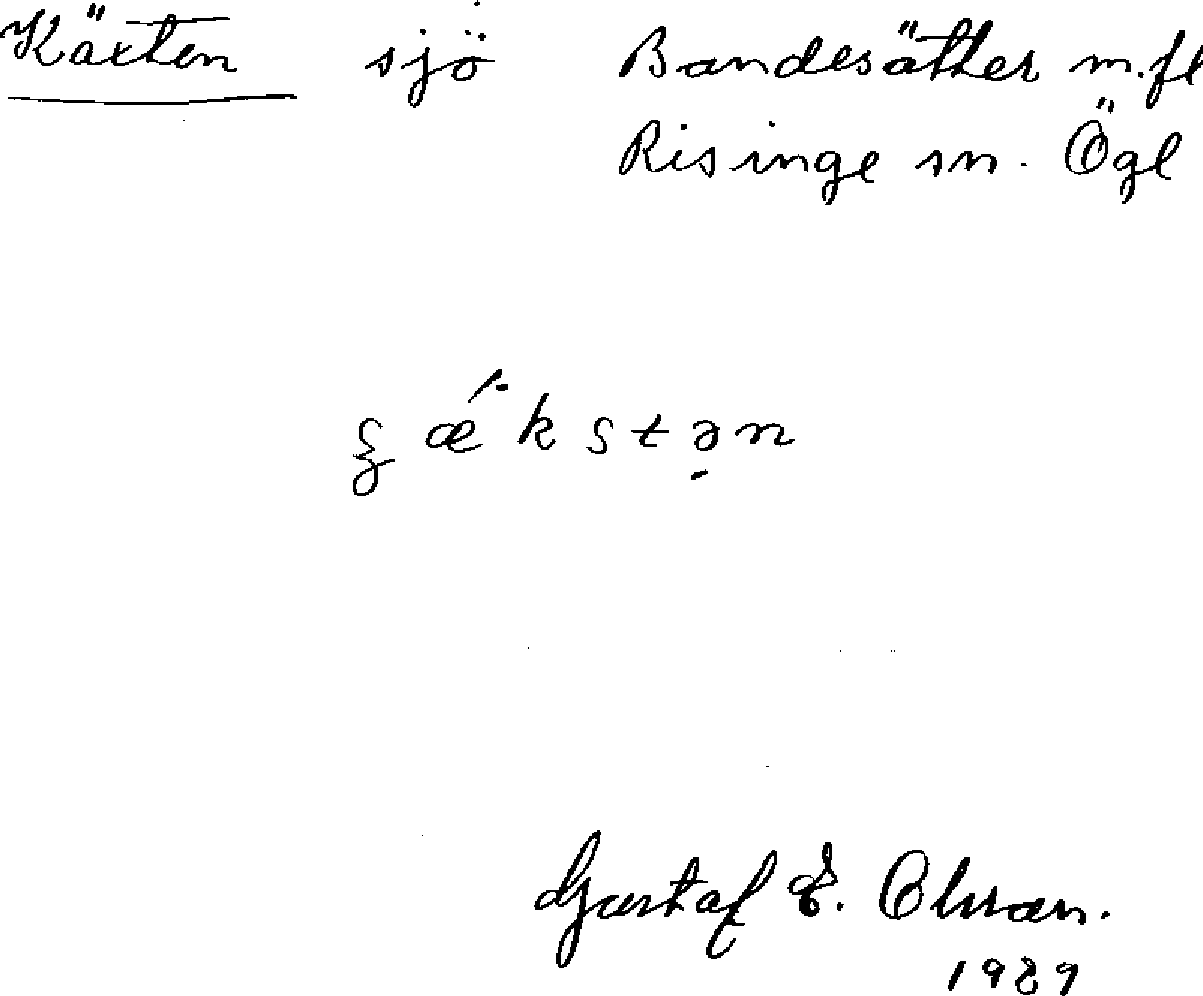 Käxten sjö Bandesätter m.fl
Risinge sn. Ögl
kstən
Gustaf E. Ohman.
1929